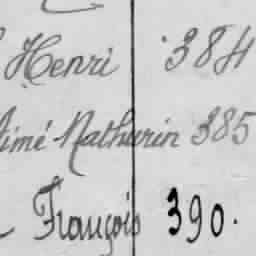 Henri 384
Aimé Mathurin 385
François 390.